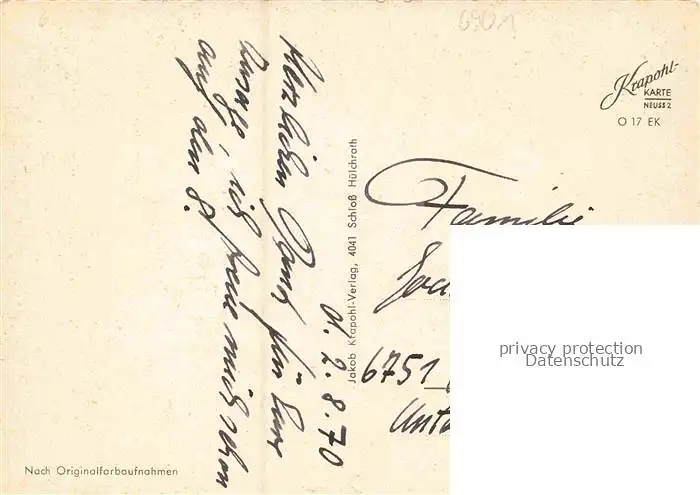 6901
N. 2.8.70
Herzlichen Dank für Eure
Anzeige, ich freue mich schon
auf den 8.
Krapohl-
KARTE
NEUSS 2
O 17 EK
Jakob Krapohl-Verlag, 4041 Schloß Hülchrath
Familie
6751
privacy protection
Datenschutz
Nach Originalfarbaufnahmen